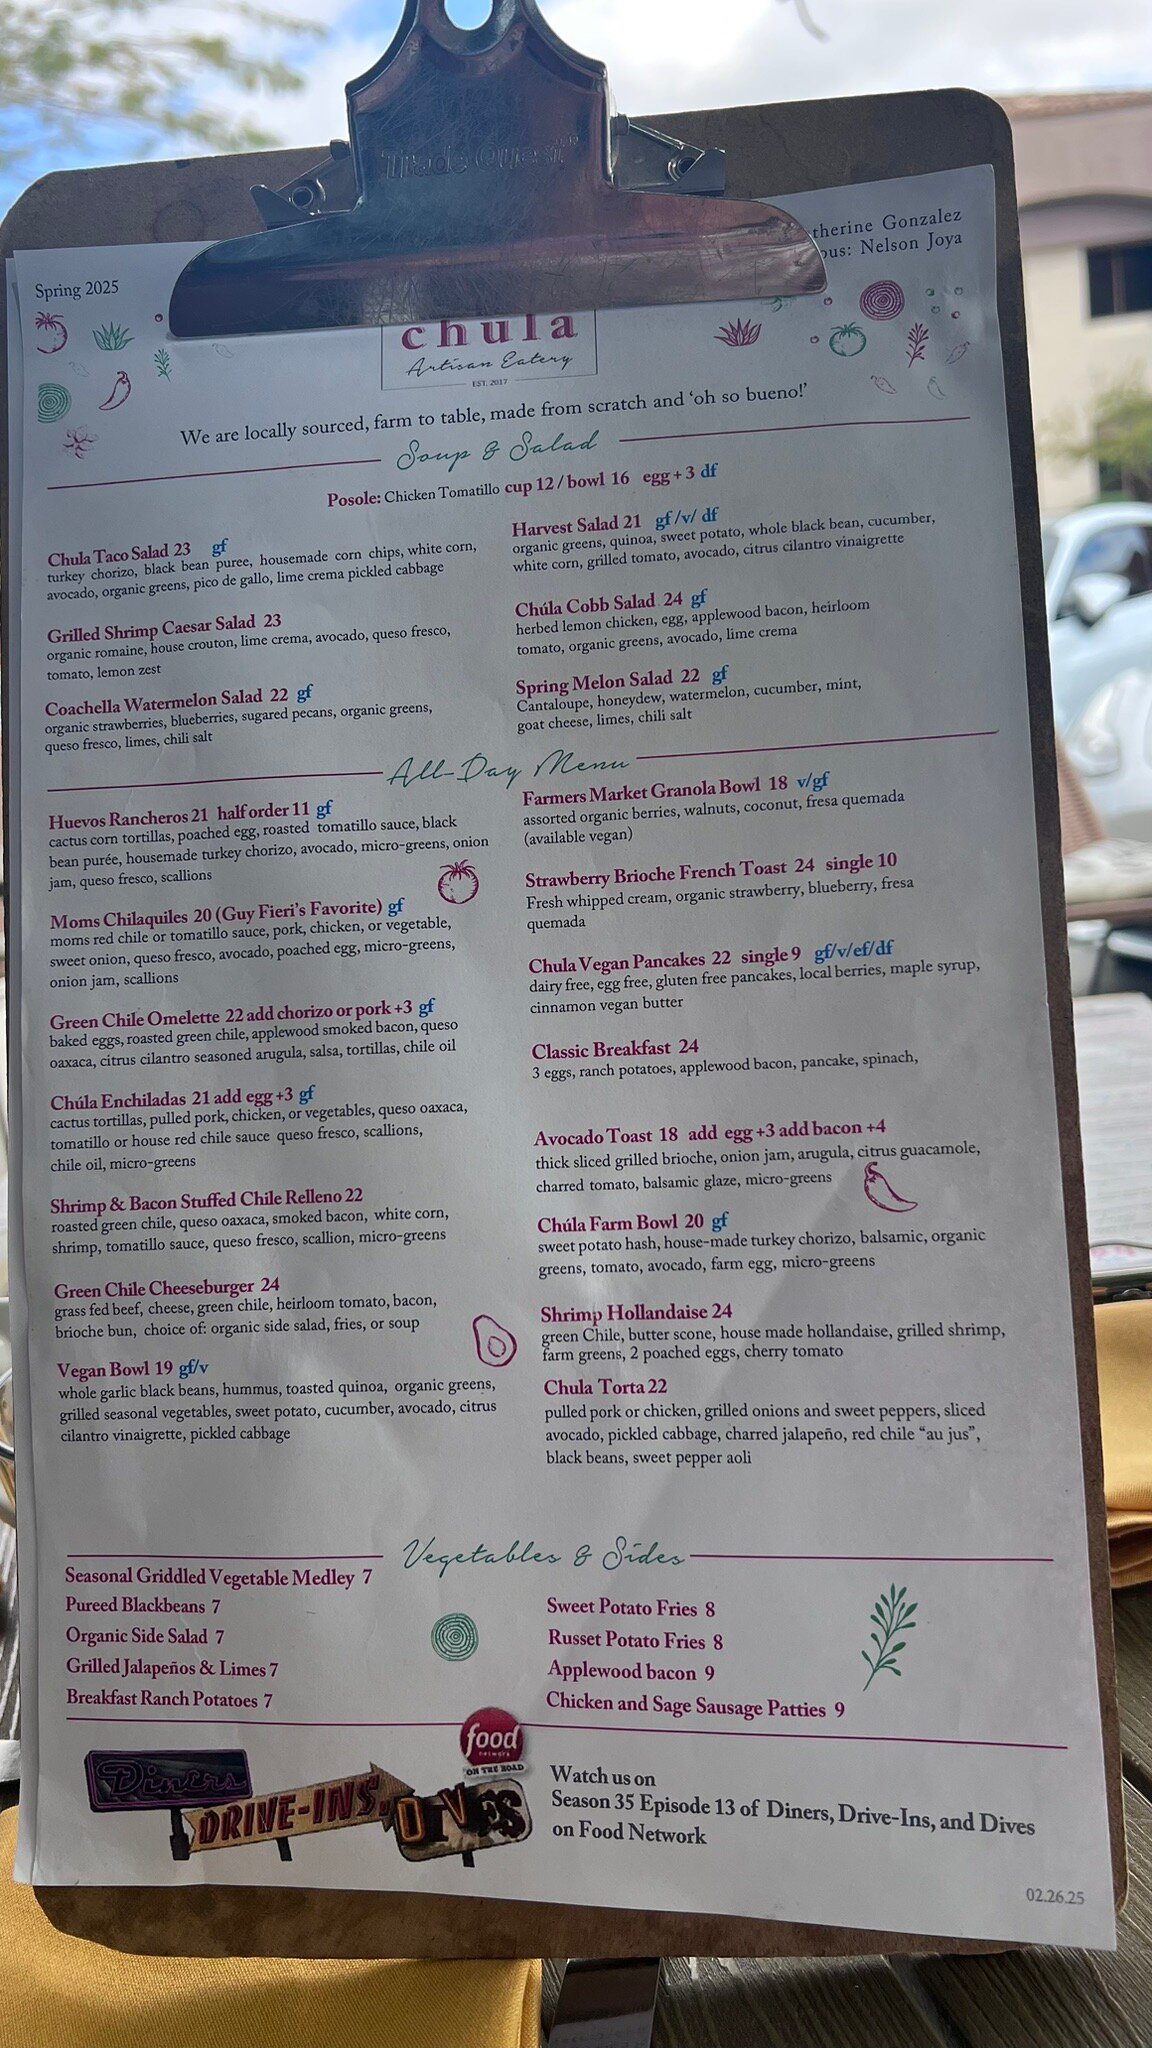 Trade Quest
therine Gonzalez
ous: Nelson Joya
Spring 2025
chúla
Artisan Eatery
EST. 2017
We are locally sourced, farm to table, made from scratch and 'oh so bueno!'
Soup & Salad
Posole: Chicken Tomatillo cup 12 / bowl 16 egg + 3 df
Chula Taco Salad 23 gf
turkey chorizo, black bean puree, housemade corn chips, white corn,
avocado, organic greens, pico de gallo, lime crema pickled cabbage
Grilled Shrimp Caesar Salad 23
organic romaine, house crouton, lime crema, avocado, queso fresco,
tomato, lemon zest
Coachella Watermelon Salad 22 gf
organic strawberries, blueberries, sugared pecans, organic greens,
queso fresco, limes, chili salt
Harvest Salad 21 gf /v/ df
organic greens, quinoa, sweet potato, whole black bean, cucumber,
white corn, grilled tomato, avocado, citrus cilantro vinaigrette
Chúla Cobb Salad 24 gf
herbed lemon chicken, egg, applewood bacon, heirloom
tomato, organic greens, avocado, lime crema
Spring Melon Salad 22 gf
Cantaloupe, honeydew, watermelon, cucumber, mint,
goat cheese, limes, chili salt
All-Day Menu
Huevos Rancheros 21 half order 11 gf
cactus corn tortillas, poached egg, roasted tomatillo sauce, black
bean purée, housemade turkey chorizo, avocado, micro-greens, onion
jam, queso fresco, scallions
Moms Chilaquiles 20 (Guy Fieri's Favorite) gf
moms red chile or tomatillo sauce, pork, chicken, or vegetable,
sweet onion, queso fresco, avocado, poached egg, micro-greens,
onion jam, scallions
Green Chile Omelette 22 add chorizo or pork +3 gf
baked eggs, roasted green chile, applewood smoked bacon, queso
oaxaca, citrus cilantro seasoned arugula, salsa, tortillas, chile oil
Chúla Enchiladas 21 add egg +3 gf
cactus tortillas, pulled pork, chicken, or vegetables, queso oaxaca,
tomatillo or house red chile sauce queso fresco, scallions,
chile oil, micro-greens
Shrimp & Bacon Stuffed Chile Relleno 22
roasted green chile, queso oaxaca, smoked bacon, white corn,
shrimp, tomatillo sauce, queso fresco, scallion, micro-greens
Green Chile Cheeseburger 24
grass fed beef, cheese, green chile, heirloom tomato, bacon,
brioche bun, choice of: organic side salad, fries, or soup
Vegan Bowl 19 gf/v
whole garlic black beans, hummus, toasted quinoa, organic greens,
grilled seasonal vegetables, sweet potato, cucumber, avocado, citrus
cilantro vinaigrette, pickled cabbage
Farmers Market Granola Bowl 18 v/gf
assorted organic berries, walnuts, coconut, fresa quemada
(available vegan)
Strawberry Brioche French Toast 24 single 10
Fresh whipped cream, organic strawberry, blueberry, fresa
quemada
Chula Vegan Pancakes 22 single 9 gf/v/ef/df
dairy free, egg free, gluten free pancakes, local berries, maple syrup,
cinnamon vegan butter
Classic Breakfast 24
3 eggs, ranch potatoes, applewood bacon, pancake, spinach,
Avocado Toast 18 add egg +3 add bacon +4
thick sliced grilled brioche, onion jam, arugula, citrus guacamole,
charred tomato, balsamic glaze, micro-greens
Chúla Farm Bowl 20 gf
sweet potato hash, house-made turkey chorizo, balsamic, organic
greens, tomato, avocado, farm egg, micro-greens
Shrimp Hollandaise 24
green Chile, butter scone, house made hollandaise, grilled shrimp,
farm greens, 2 poached eggs, cherry tomato
Chula Torta 22
pulled pork or chicken, grilled onions and sweet peppers, sliced
avocado, pickled cabbage, charred jalapeño, red chile "au jus",
black beans, sweet pepper aoli
Vegetables & Sides
Seasonal Griddled Vegetable Medley 7
Pureed Blackbeans 7
Organic Side Salad 7
Grilled Jalapeños & Limes 7
Breakfast Ranch Potatoes 7
Sweet Potato Fries 8
Russet Potato Fries 8
Applewood bacon 9
Chicken and Sage Sausage Patties 9
food
network
ON THE ROAD
Diners
DRIVE-INS,
DIVES
Watch us on
Season 35 Episode 13 of Diners, Drive-Ins, and Dives
on Food Network
02.26.25